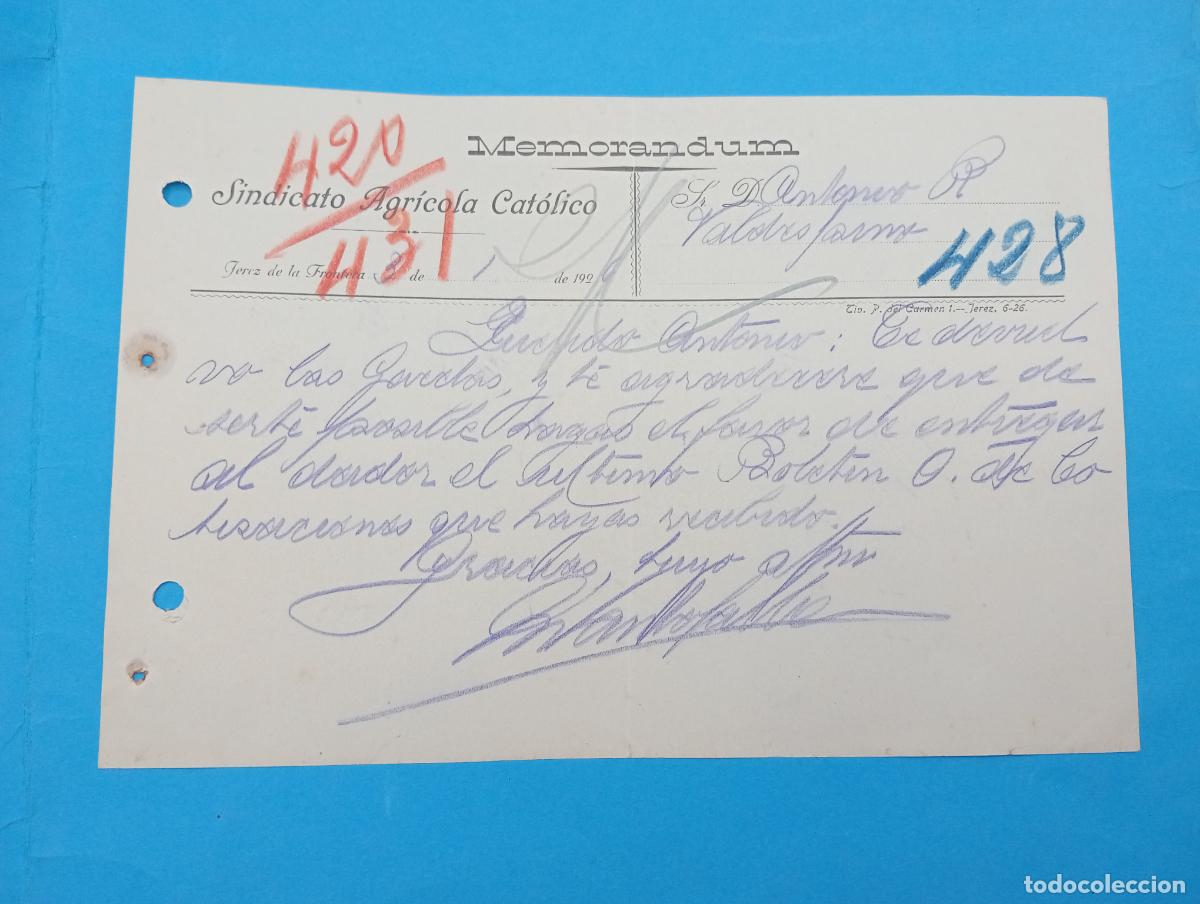 Memorandum
420
431
Sindicato Agrícola Católico
Jerez de la Frontera 3 de 1 de 192
Sr. D. Antonio R
Valdespino
428
Tip. P. del Carmen 1.—Jerez, 6-26.
Querido Antonio: Te devuel
vo las Gacetas, y te agradecere que de
serte posible hagas el favor de entregar
al dador el ultimo Boletin O. de Co
tizaciones que hayas recibido.
Gracias, tuyo affmo
todocoleccion